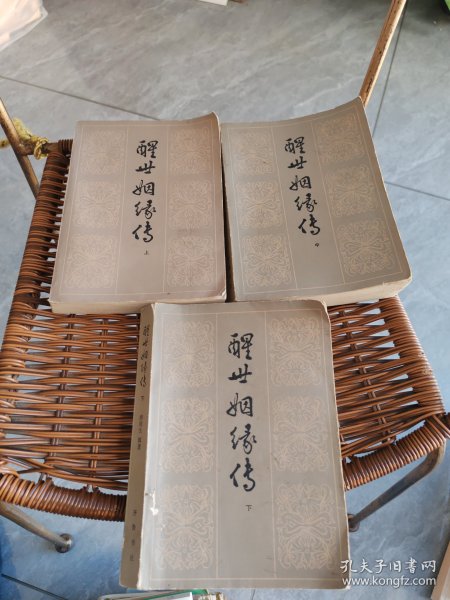 醒世姻缘传
上
醒世姻缘传
中
醒世姻缘传
下
醒世姻缘传
下
齐鲁书社
孔夫子旧书网
www.kongfz.com